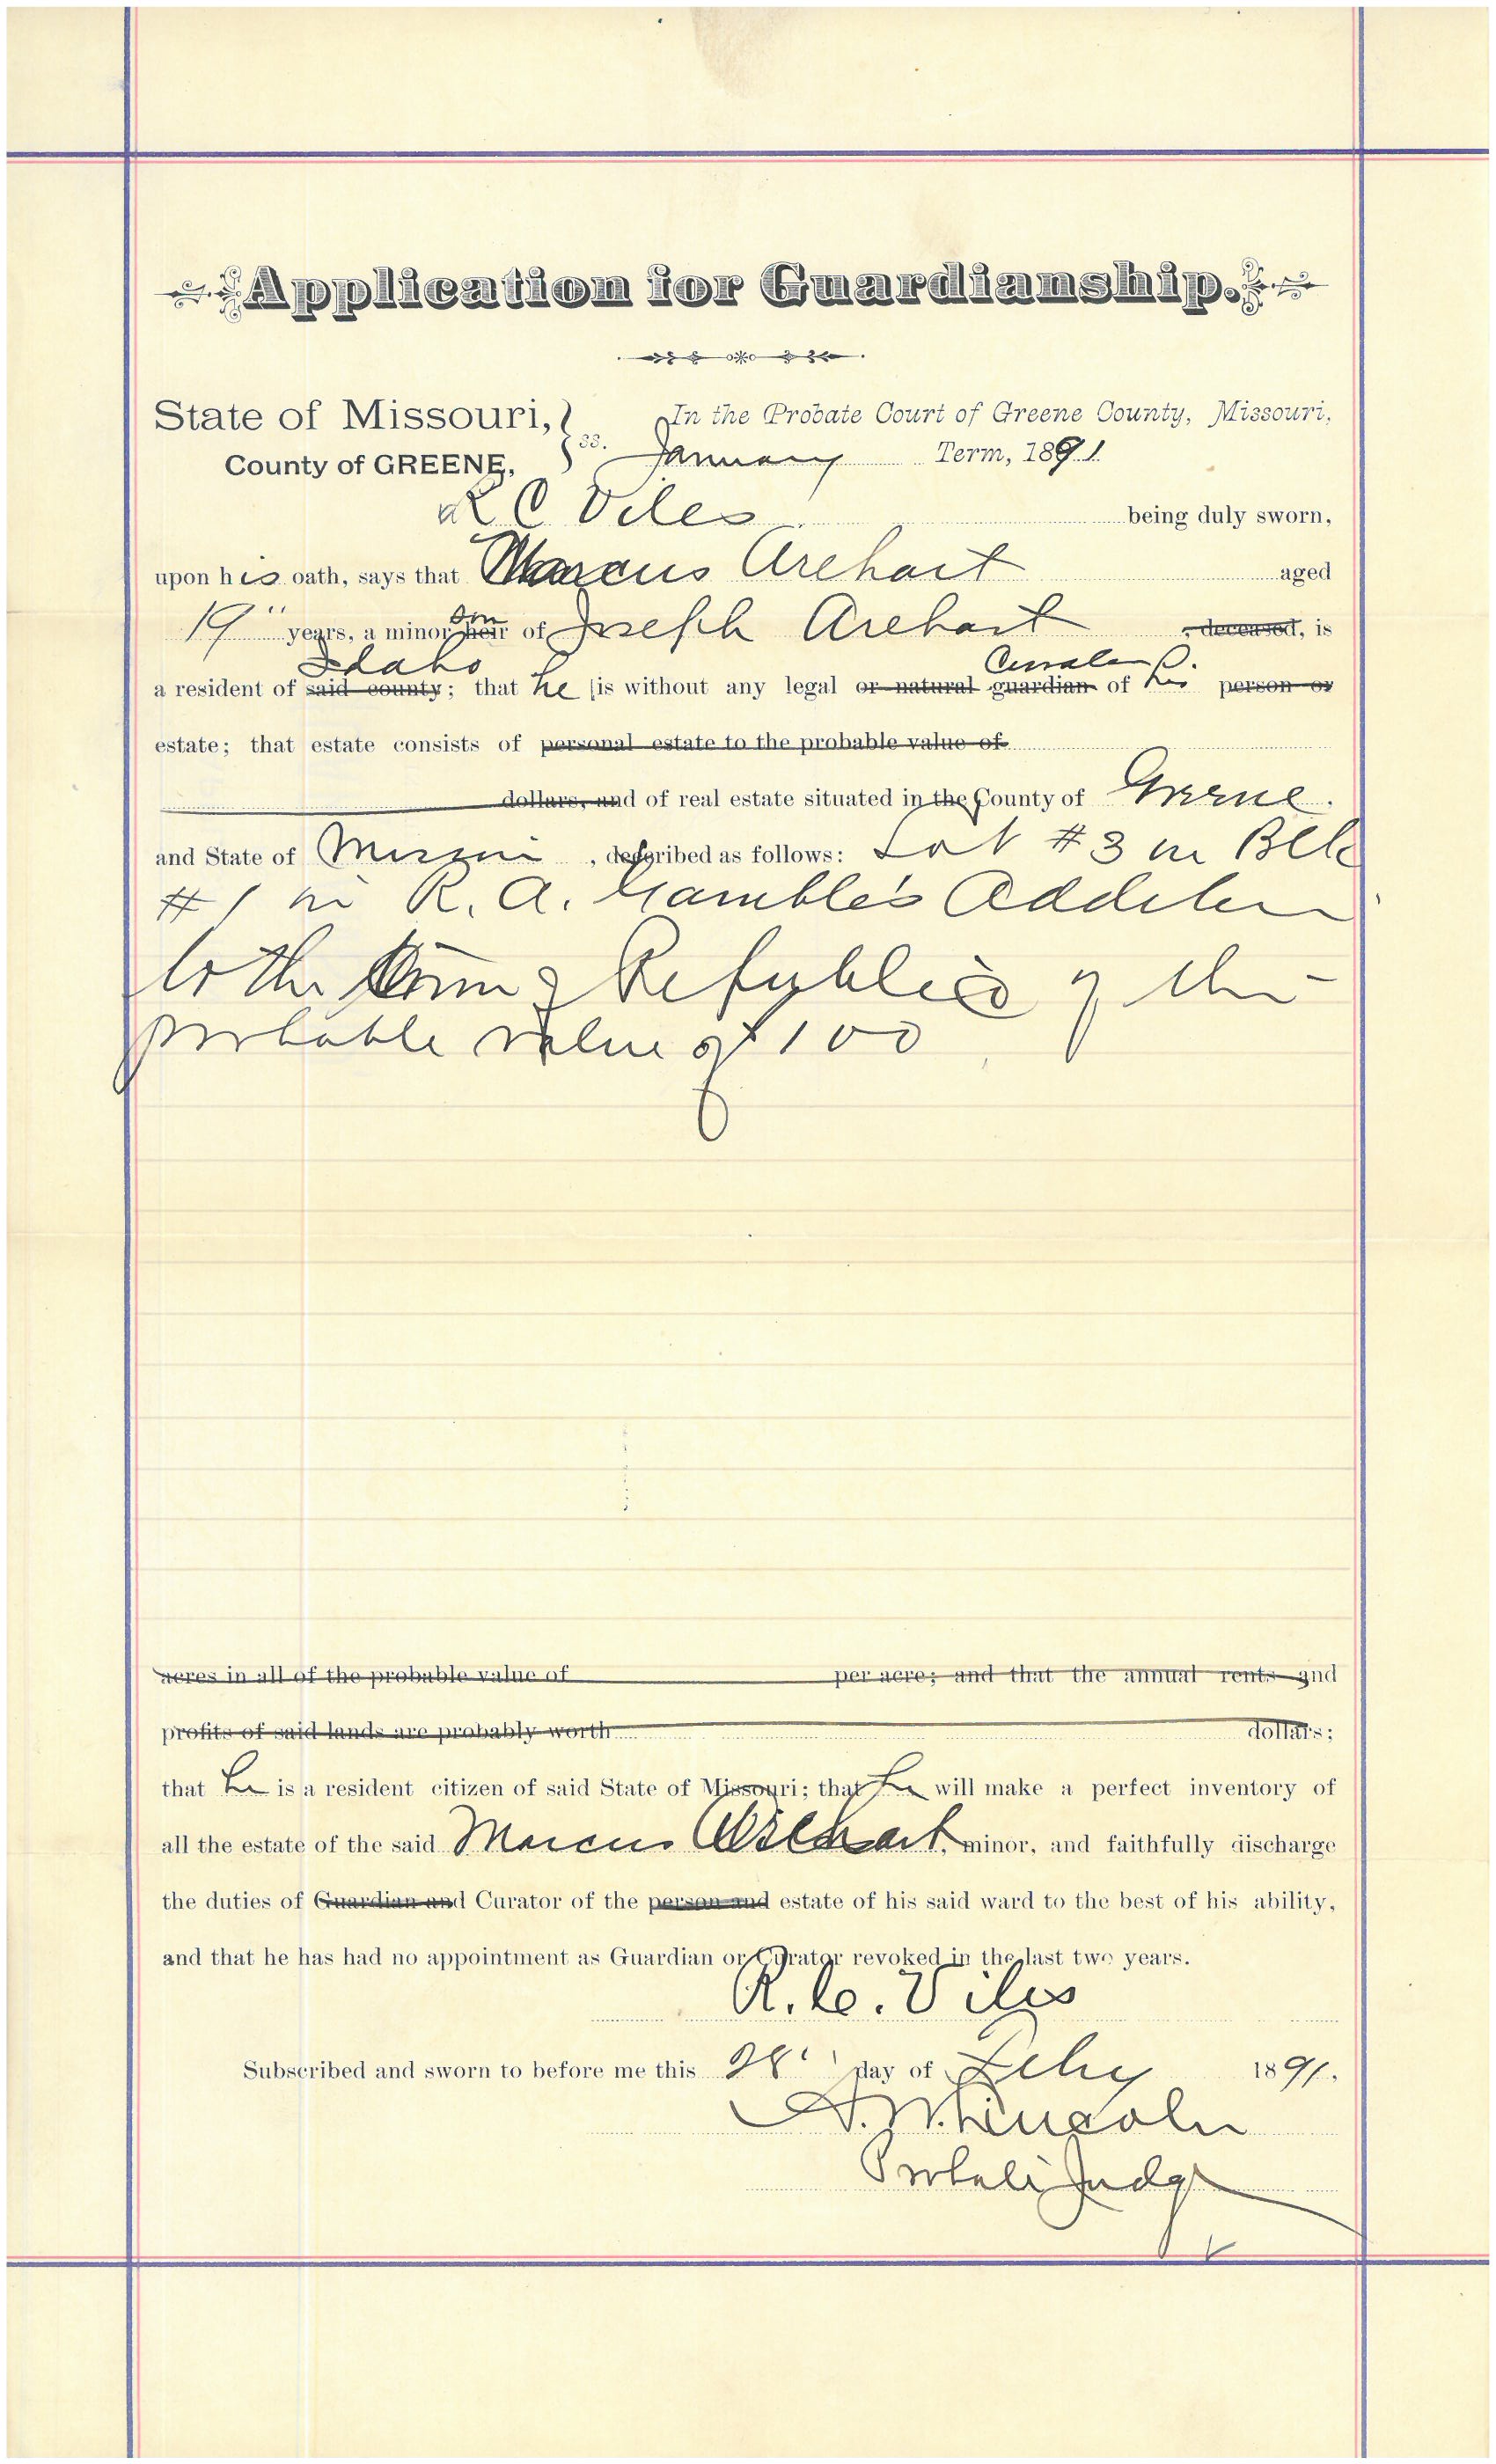 Application for Guardianship.
State of Missouri, } ss. In the Probate Court of Greene County, Missouri,
County of GREENE, January Term, 1891
R C Viles being duly sworn,
upon his oath, says that Marcus Arehart aged
son
19 years, a minor heir of Joseph Arehart , deceased, is
Idaho Curator
a resident of said county; that he is without any legal or natural guardian of his person or
estate; that estate consists of personal estate to the probable value of
dollars, and of real estate situated in the County of Greene
and State of Missouri , described as follows: Lot #3 in Blk
#1 in R. A. Gamble's Addition
to the Town of Republic of the
probable value of 100
acres in all of the probable value of per acre; and that the annual rents and
profits of said lands are probably worth dollars;
that he is a resident citizen of said State of Missouri; that he will make a perfect inventory of
all the estate of the said Marcus Arehart, minor, and faithfully discharge
the duties of Guardian and Curator of the person and estate of his said ward to the best of his ability,
and that he has had no appointment as Guardian or Curator revoked in the last two years.
R. C. Viles
Subscribed and sworn to before me this 28 day of Feby 1891.
A. W. Lincoln
Probate Judge